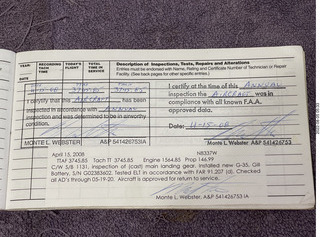 YEAR RECORDING TACH TIME TODAY'S FLIGHT TOTAL TIME IN SERVICE
Description of Inspections, Tests, Repairs and Alterations
Entries must be endorsed with Name, Rating and Certificate Number of Technician or Repair
Facility. (See back pages for other specific entries.)
DATE
3745.85
I certify that this AIRCRAFT has been
inspected in accordance with ANNUAL
inspection and was determined to be in airworthy
condition.
MONTE L. WEBSTER A&P 541426753
I certify at the time of this ANNUAL
inspection the AIRCRAFT was in
compliance with all known F.A.A.
approved data.
Date:
Monte L. Webster A&P 541426753
April 15, 2008 N8337W
TTAF 3745.85 Tach TT 3745.85 Engine 1564.85 Prop 146.99
C/W 5/B 1131, inspection of (cast) main landing gear. Installed new G-35, Gill
Battery, S/N G02383602. Tested ELT in accordance with FAR 91.207 (d). Checked
all AD's through 05-19-20. Aircraft is approved for return to service.
Monte L. Webster, A&P 541426753 IA